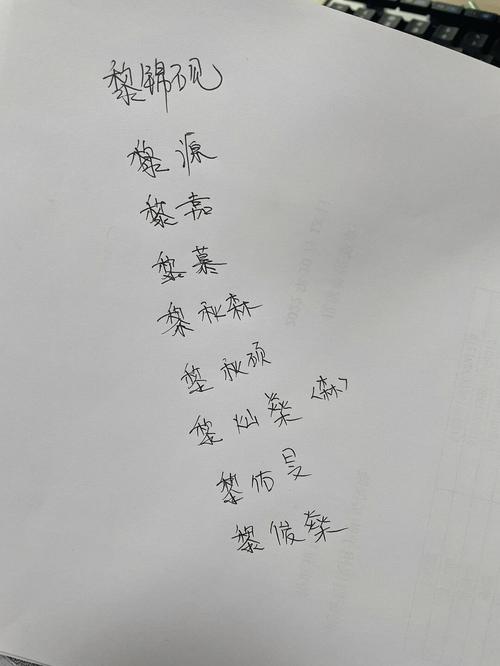 黎锦砚
黎源
黎嘉
黎慕
黎秋森
黎秋硕
黎灿燊(森)
黎佑旻
黎俊燊